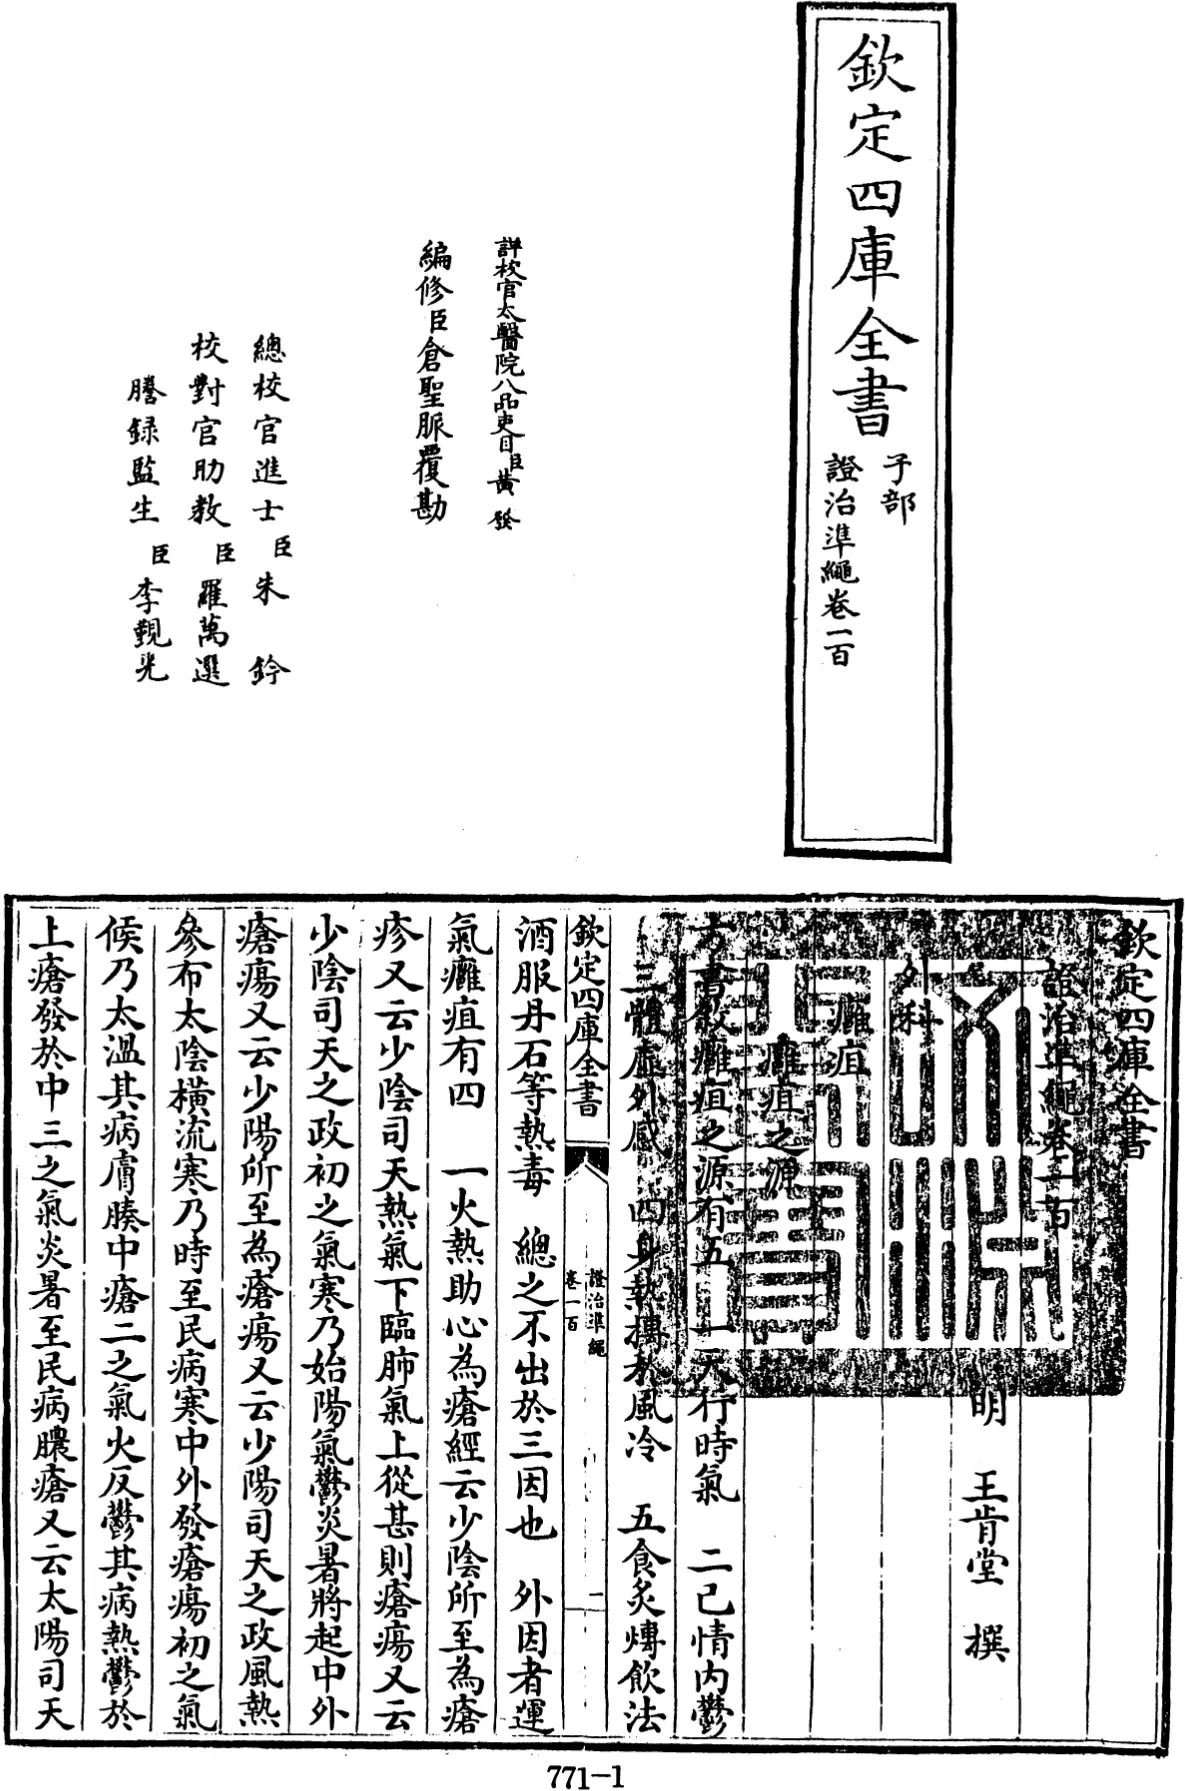 欽定四庫全書
子部
證治準繩卷一百
詳校官太醫院八品吏目臣黃發
編修臣倉聖脈覆勘
總校官進士臣朱鈐
校對官助教臣羅萬選
謄錄監生臣李覲光
欽定四庫全書
證治準繩卷一百
明 王肯堂 撰
外科
癰疽
癰疽之源
方書敘癰疽之源有五 一天行時氣 二七情內鬱
三體虛外感 四身熱搏於風冷 五食炙煿飲法
欽定四庫全書
證治準繩
卷一百
一
酒服丹石等熱毒 總之不出於三因也 外因者運
氣癰疽有四 一火熱助心為瘡經云少陰所至為瘡
疹又云少陰司天熱氣下臨肺氣上從甚則瘡瘍又云
少陰司天之政初之氣寒乃始陽氣鬱炎暑將起中外
瘡瘍又云少陽所至為瘡瘍又云少陽司天之政風熱
參布太陰橫流寒乃時至民病寒中外發瘡瘍初之氣
候乃太溫其病膚腠中瘡二之氣火反鬱其病熱鬱於
上瘡發於中三之氣炎暑至民病膿瘡又云太陽司天
771-1